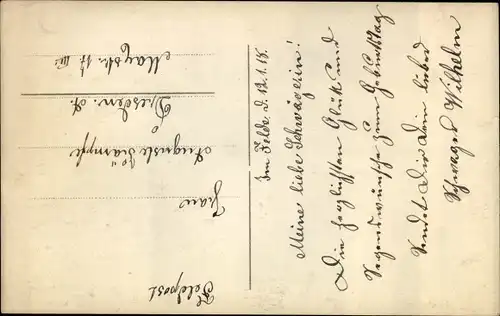 Feldpost
Frau
Auguste
Dresden. A.
Im Felde d. 12.1.18.
Meine liebe Schwägerin!
Die herzlichsten Glück und
Segenswünsche zum Geburtstag
sendet Dir Dein lieber
Schwager Wilhelm